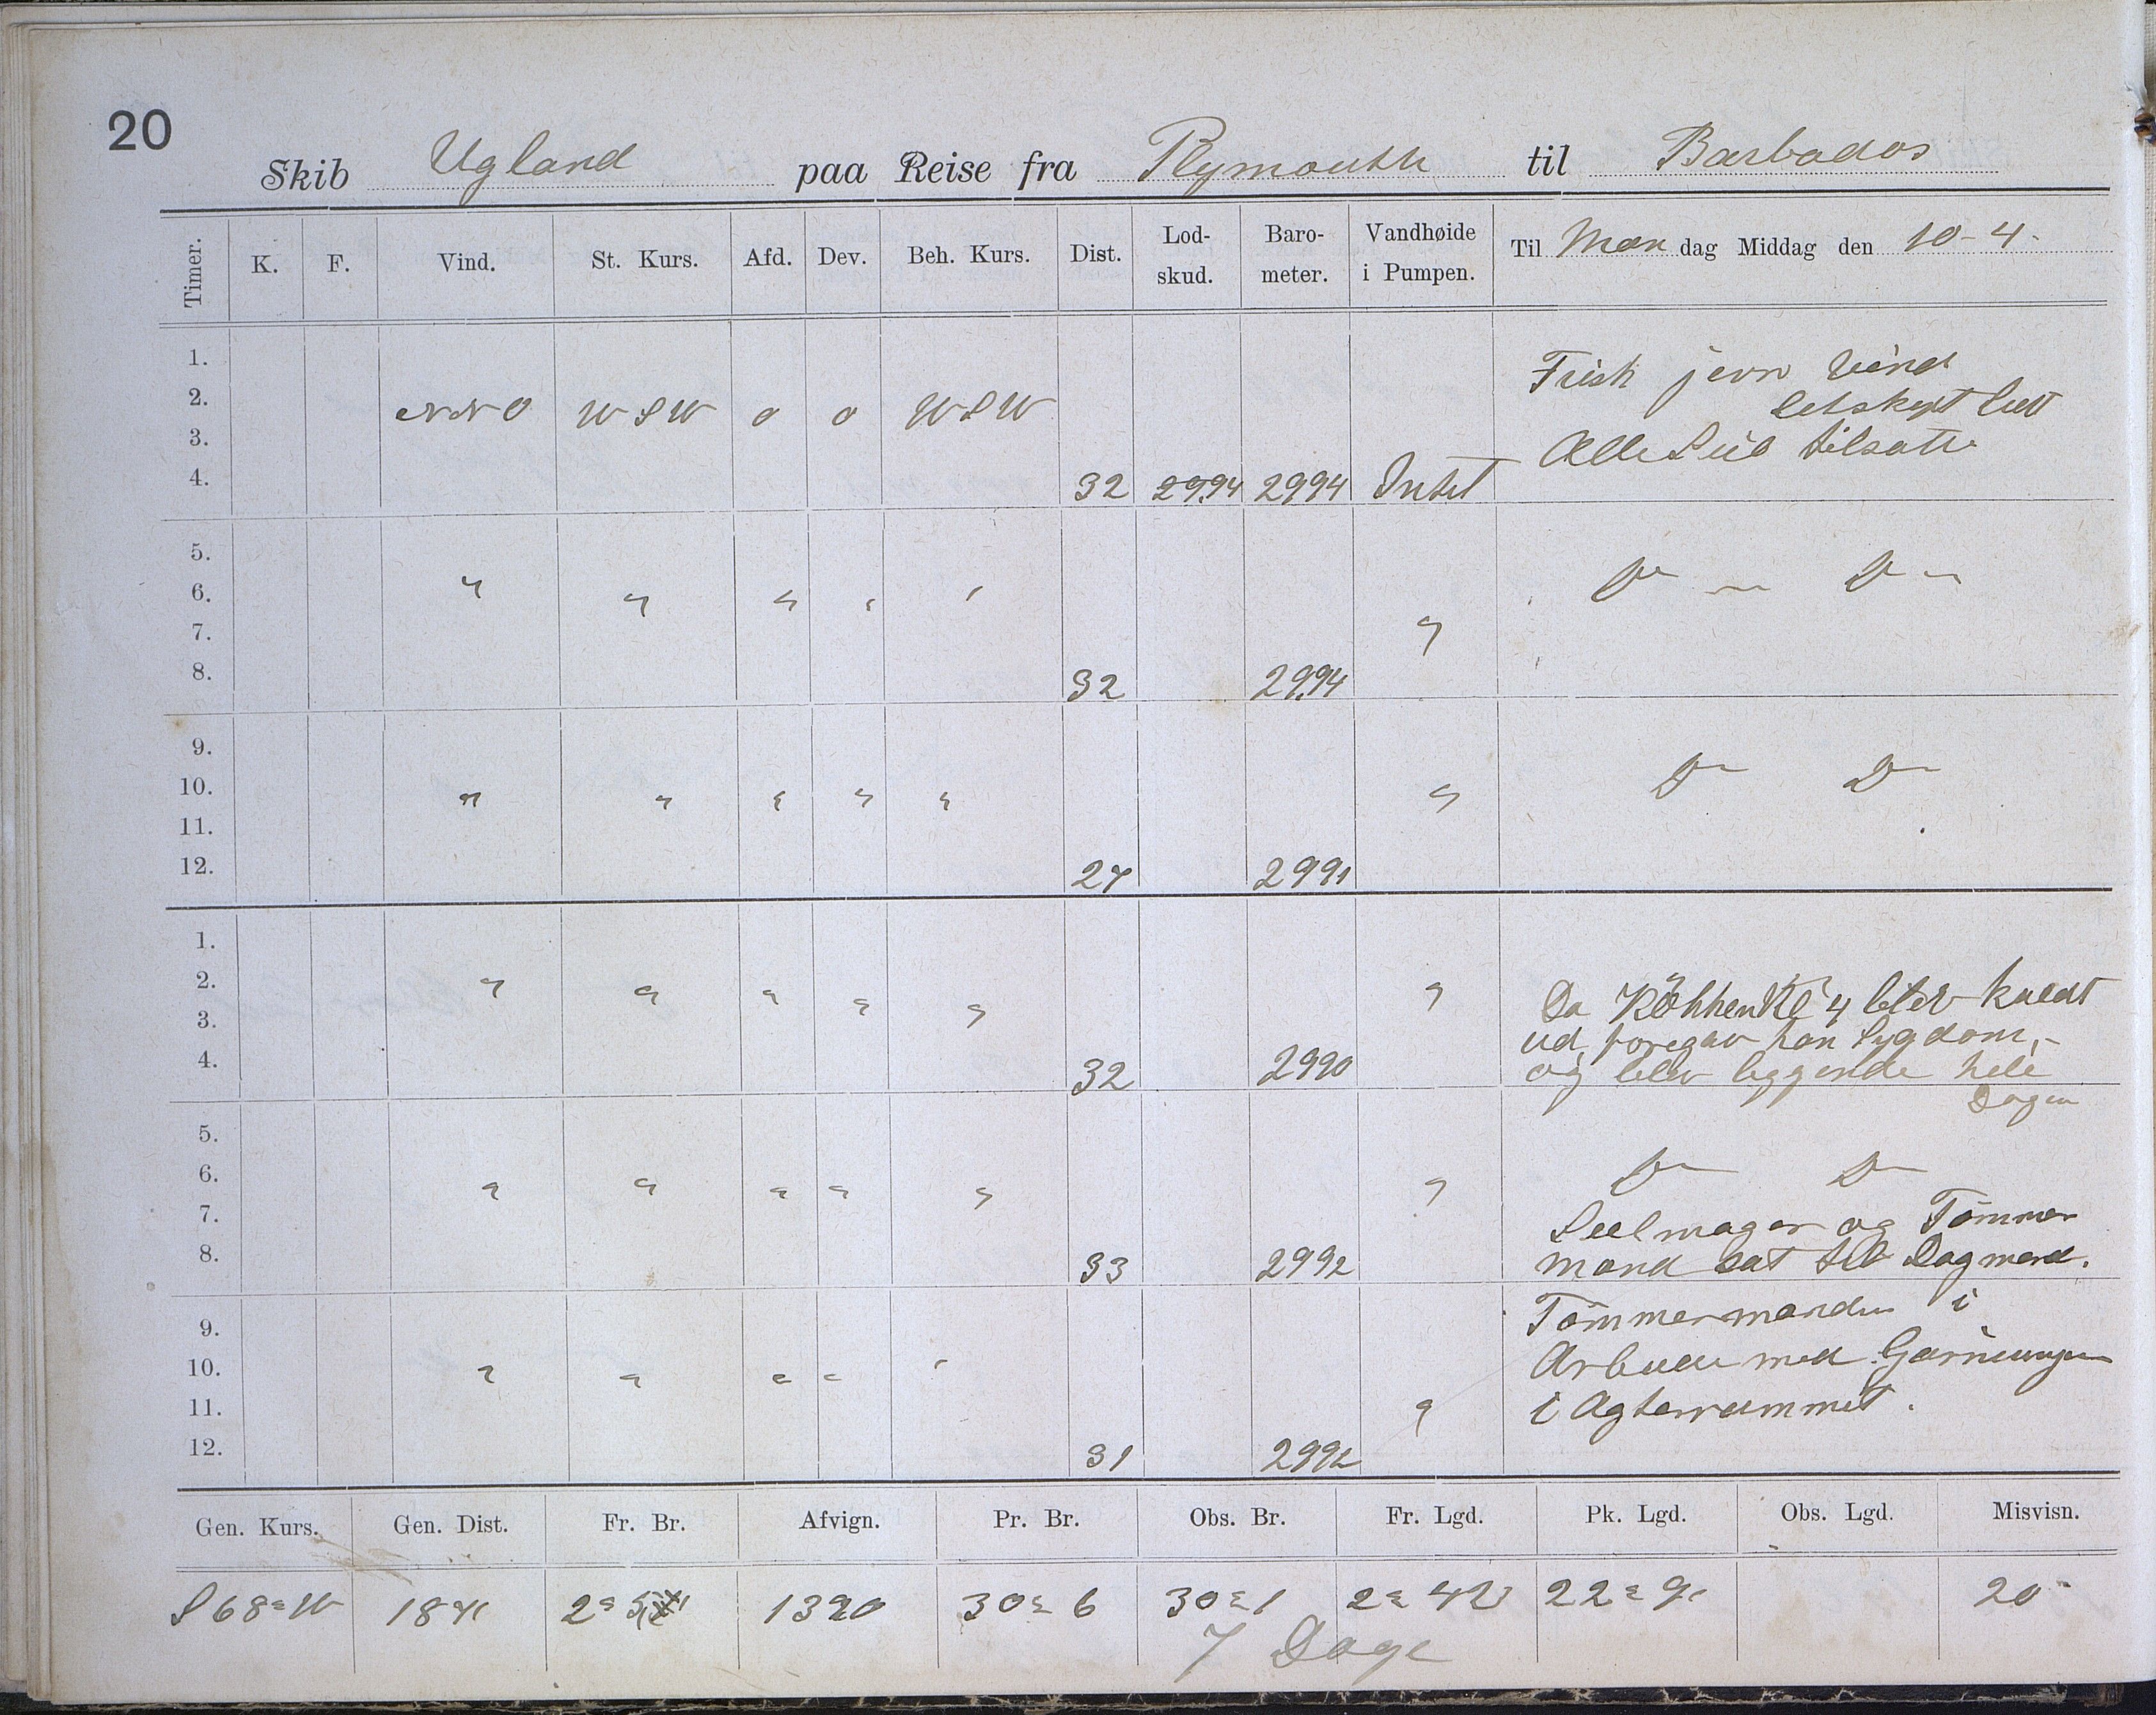 20
Skib Ugland paa Reise fra Plymouth til Barbados
Timer. K. F. Vind. St. Kurs. Afd. Dev. Beh. Kurs. Dist. Lod-skud. Baro-meter. Vandhøide i Pumpen. Til Man dag Middag den 10-4-
1. Frisk jevn Vind
2. NNO WSW o o WSW letskyet luft
3. Alle Seil tilsatte
4. 32 29.94 2994 Intet
5.
6. " " " " " Do — Do —
7. "
8. 32 29.94
9.
10. " " " " " " Do Do
11.
12. 27 2991
1.
2. " " " " " " Da Kl 4 blev kaldt
3. ud, foregav han Sygdom,-
4. 32 2990 og blev liggende hele
Dagen
5.
6. " " " " " " Do Do
7. Seelmager og Tømmer
8. 33 2992 mand sat til Dagmand.
9. Tømmermanden i
10. " " " " " Arbeide med Garneringen
11. " i Agterrummet.
12. 31 2992
Gen. Kurs. Gen. Dist. Fr. Br. Afvign. Pr. Br. Obs. Br. Fr. Lgd. Pk. Lgd. Obs. Lgd. Misvisn.
S 68 W 30 6 30 1 2 42 22 9 20
7 Dage